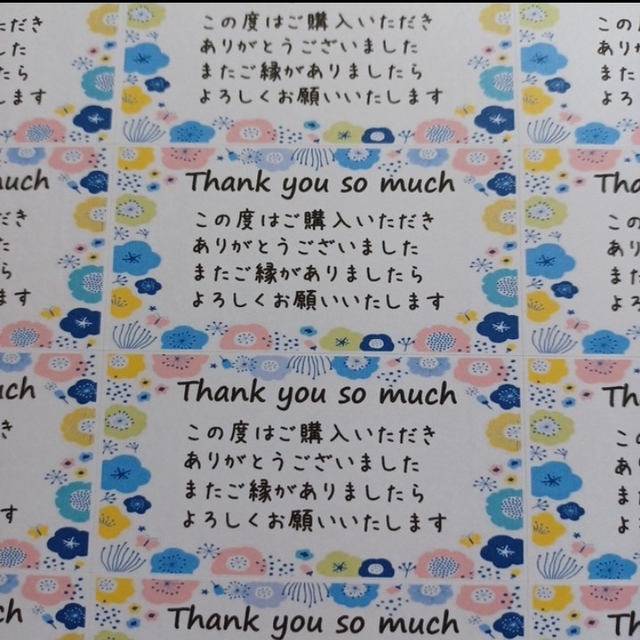 この度はご購入いただき
ありがとうございました
またご縁がありましたら
よろしくお願いいたします
Thank you so much
この度はご購入いただき
ありがとうございました
またご縁がありましたら
よろしくお願いいたします
Thank you so much
この度はご購入いただき
ありがとうございました
またご縁がありましたら
よろしくお願いいたします
Thank you so much